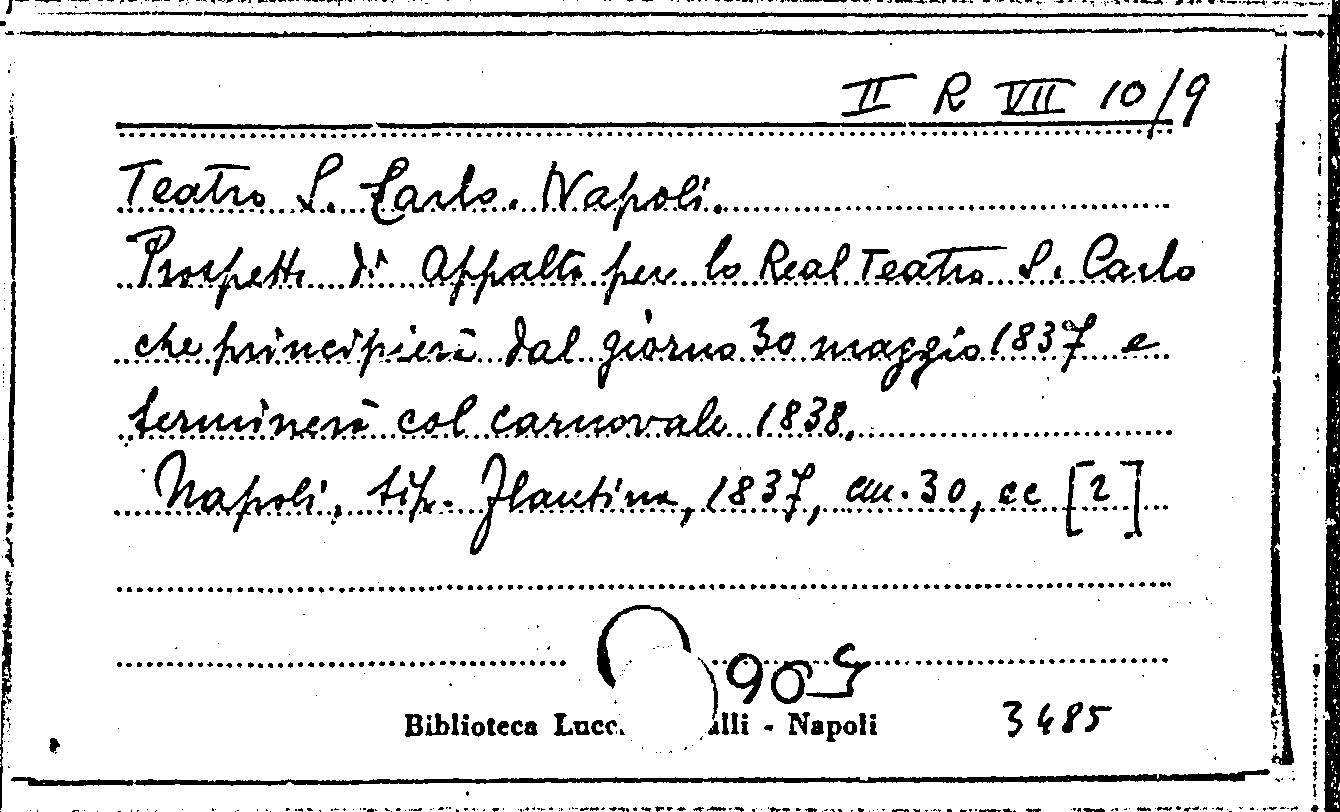 II R VII 10/9
Teatro S. Carlo. Napoli.
Prospetto di Appalto per lo Real Teatro S. Carlo
che principierà dal giorno 30 maggio 1837 e
terminerà col carnovale 1838.
Napoli, tip. Flautina, 1837, cm. 30, cc [2]
Biblioteca Lucc lli - Napoli
3485